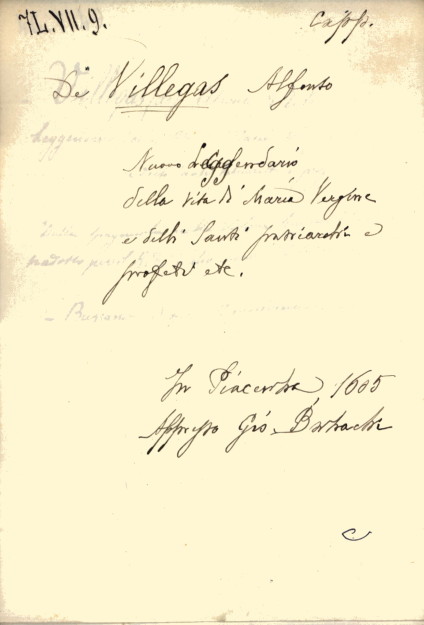 7L.VII.9.
Capp.
De Villegas Alfonso
Nuovo Leggendario
della vita di Maria Vergine
e delli Santi patriarchi e
profeti etc.
In Piacenza, 1605
Appresso Gio.